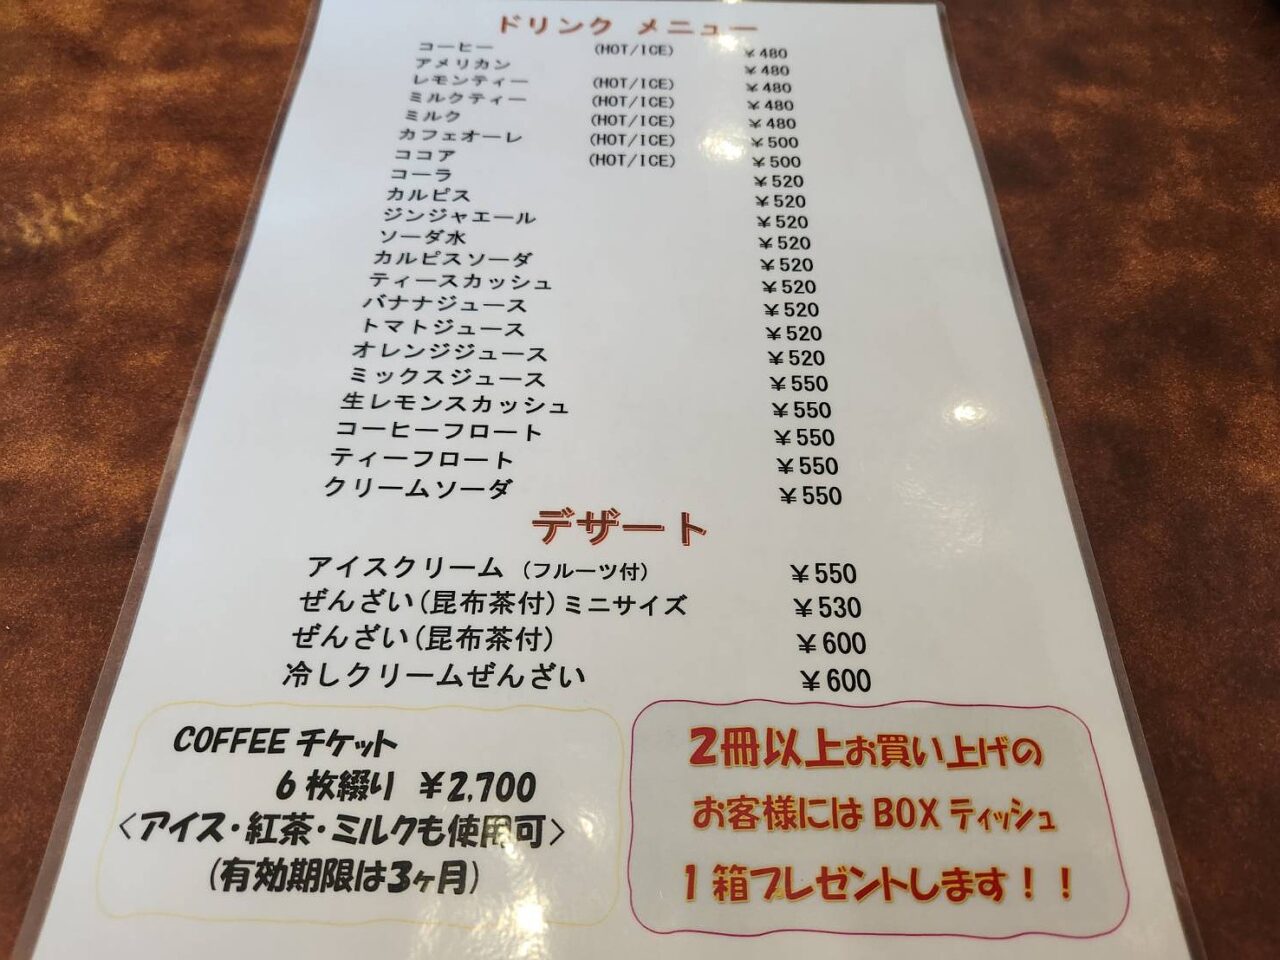 ドリンク メニュー
コーヒー (HOT/ICE) ¥480
アメリカン ¥480
レモンティー (HOT/ICE) ¥480
ミルクティー (HOT/ICE) ¥480
ミルク (HOT/ICE) ¥480
カフェオーレ (HOT/ICE) ¥500
ココア (HOT/ICE) ¥500
コーラ ¥520
カルピス ¥520
ジンジャエール ¥520
ソーダ水 ¥520
カルピスソーダ ¥520
ティースカッシュ ¥520
バナナジュース ¥520
トマトジュース ¥520
オレンジジュース ¥520
ミックスジュース ¥550
生レモンスカッシュ ¥550
コーヒーフロート ¥550
ティーフロート ¥550
クリームソーダ ¥550
デザート
アイスクリーム (フルーツ付) ¥550
ぜんざい(昆布茶付)ミニサイズ ¥530
ぜんざい(昆布茶付) ¥600
冷しクリームぜんざい ¥600
COFFEE チケット
6枚綴り ¥2,700
<アイス・紅茶・ミルクも使用可>
(有効期限は3ヶ月)
2冊以上お買い上げの
お客様にはBOXティッシュ
1箱プレゼントします!!